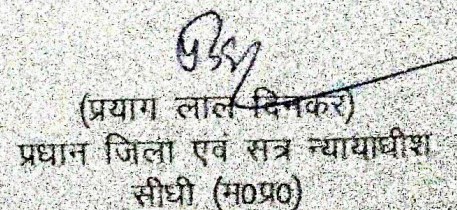 (प्रयाग लाल दिनकर)
प्रधान जिला एवं सत्र न्यायाधीश
सीधी (म0प्र0)